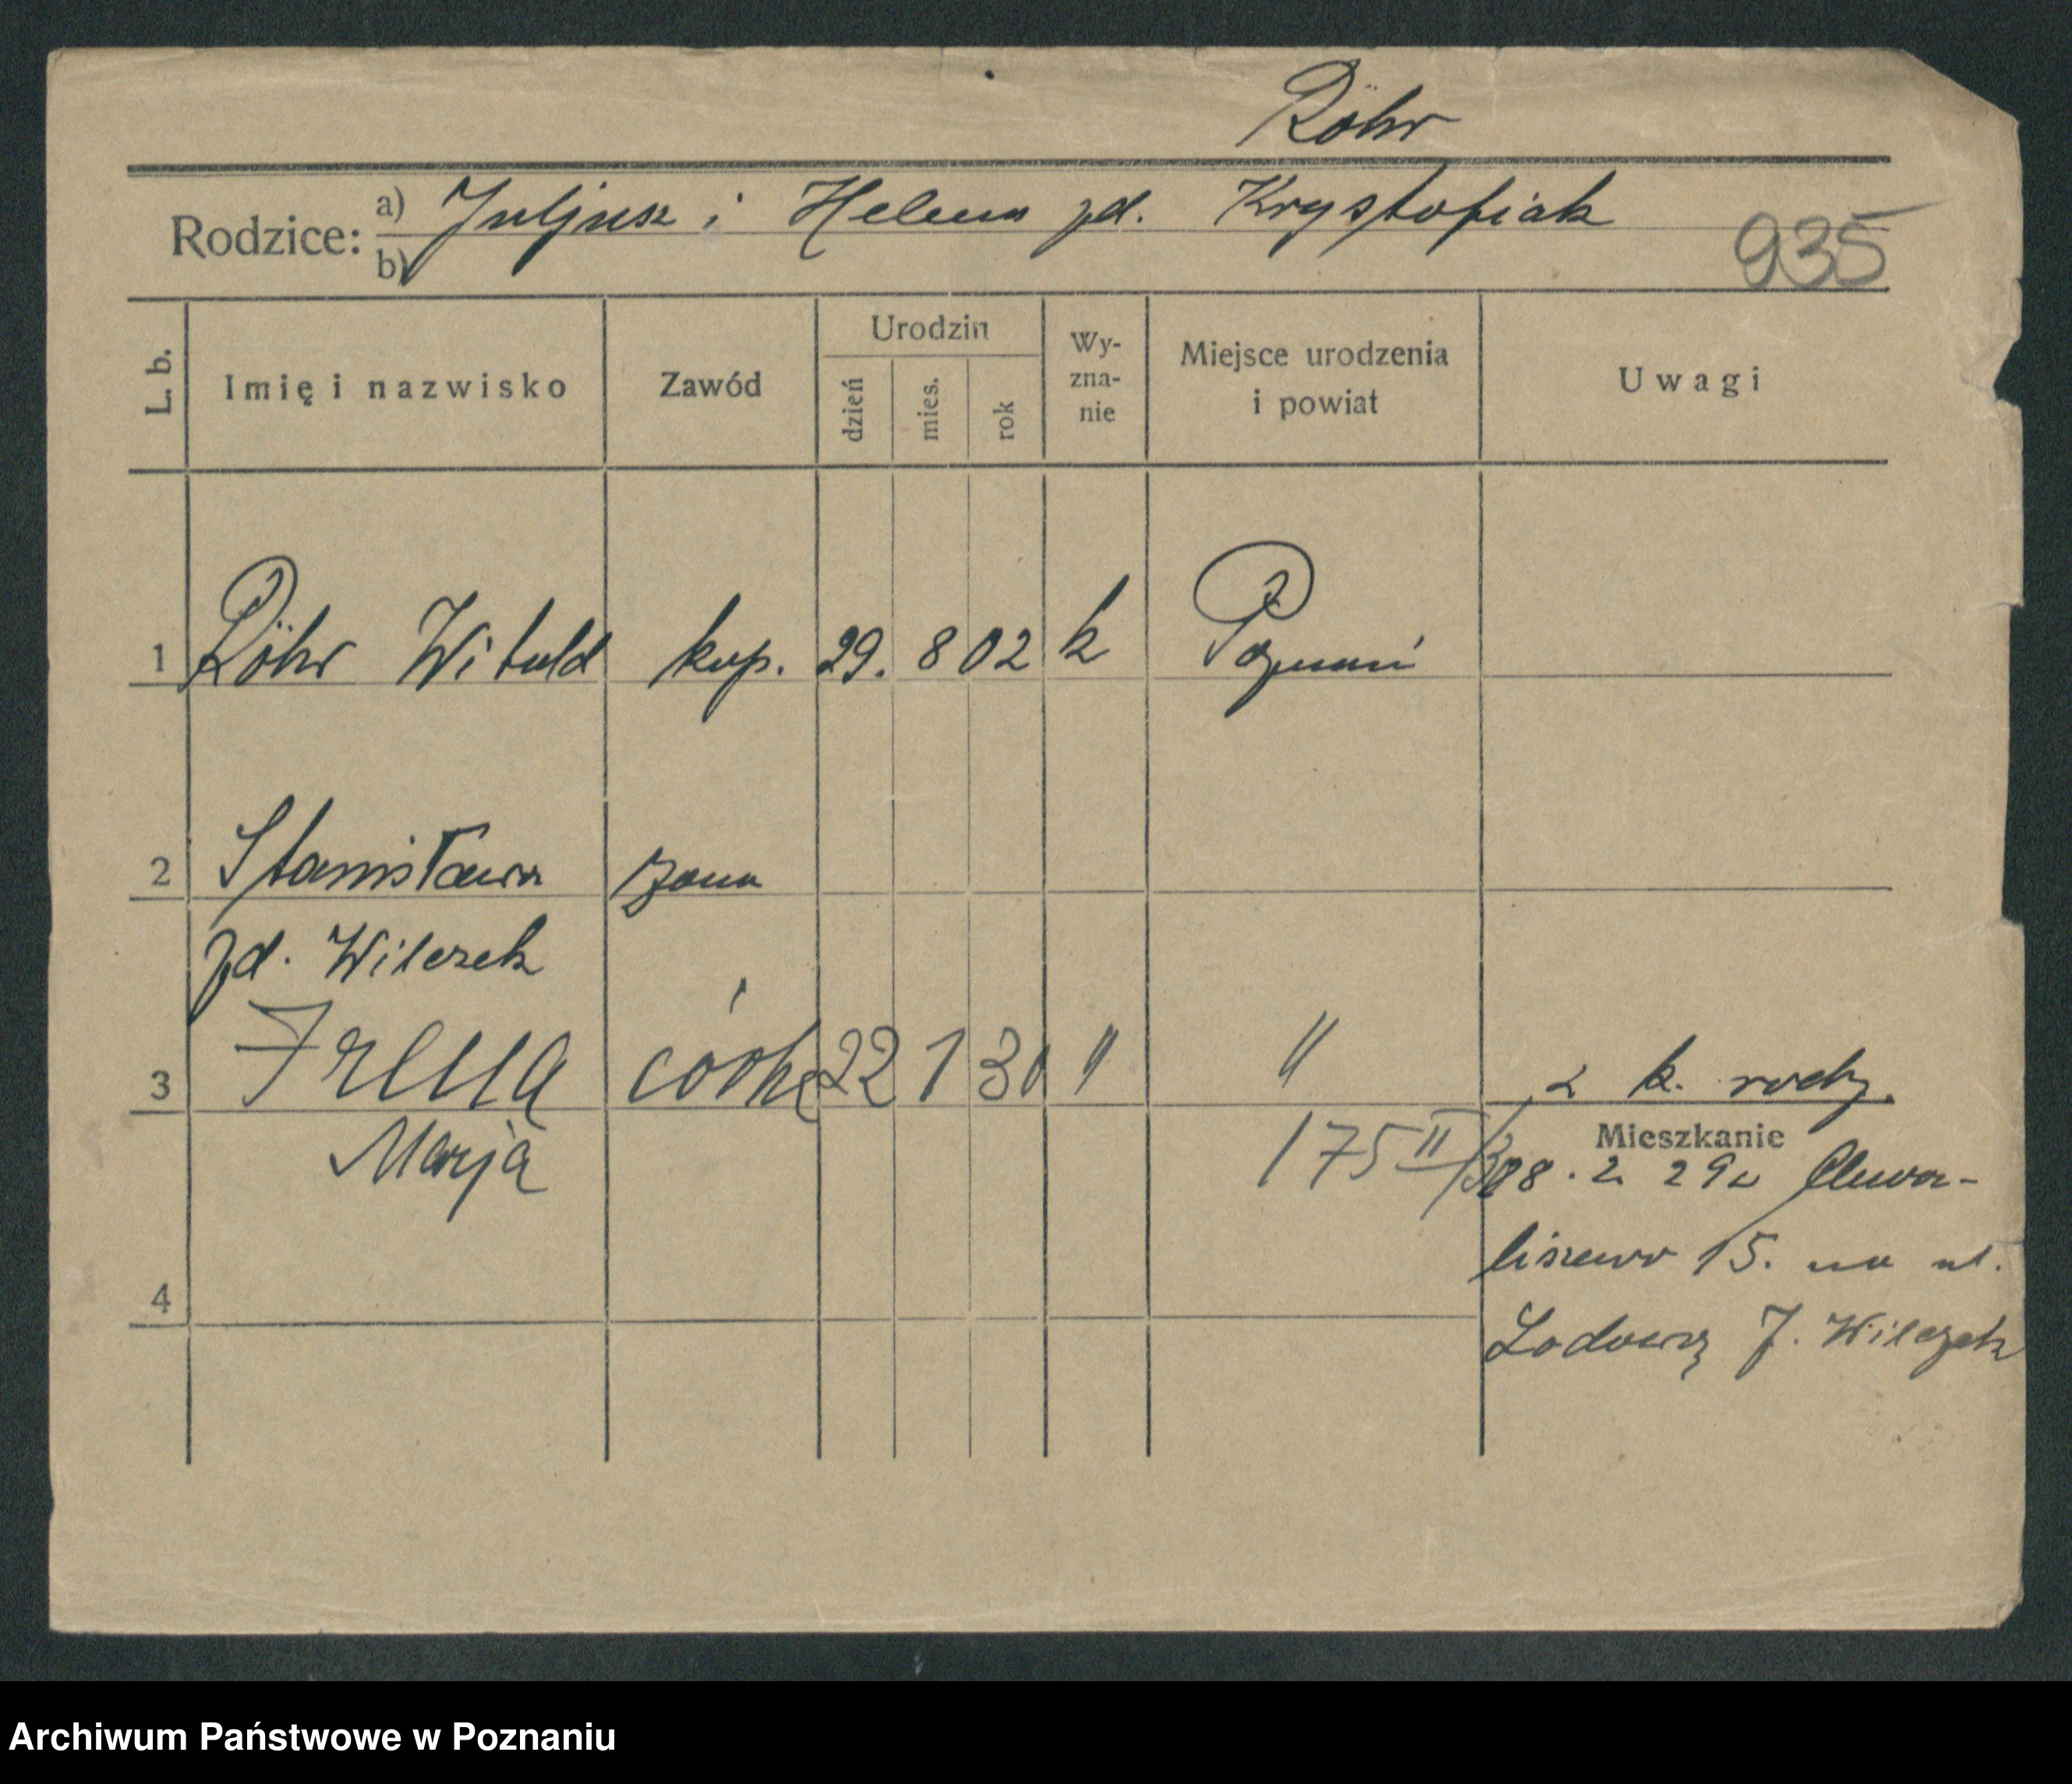 Röhr
Rodzice: a) Juljusz i Helena zd. Krystofiak
b)
935
L. b.
Imię i nazwisko
Zawód
Urodzin
dzień
mies.
rok
Wy-
zna-
nie
Miejsce urodzenia
i powiat
Uwagi
1 Röhr Witold kup. 29. 8 02 k Poznań
2 Stanisława żona
zd. Wilczek
3 Irena córka 22 1 30 " "
z k. rodz.
Marja
175 II/30
Mieszkanie
28. 2 29 z Chwa-
liszewo 15. na ul.
4
Lodową J. Wilczek
Archiwum Państwowe w Poznaniu